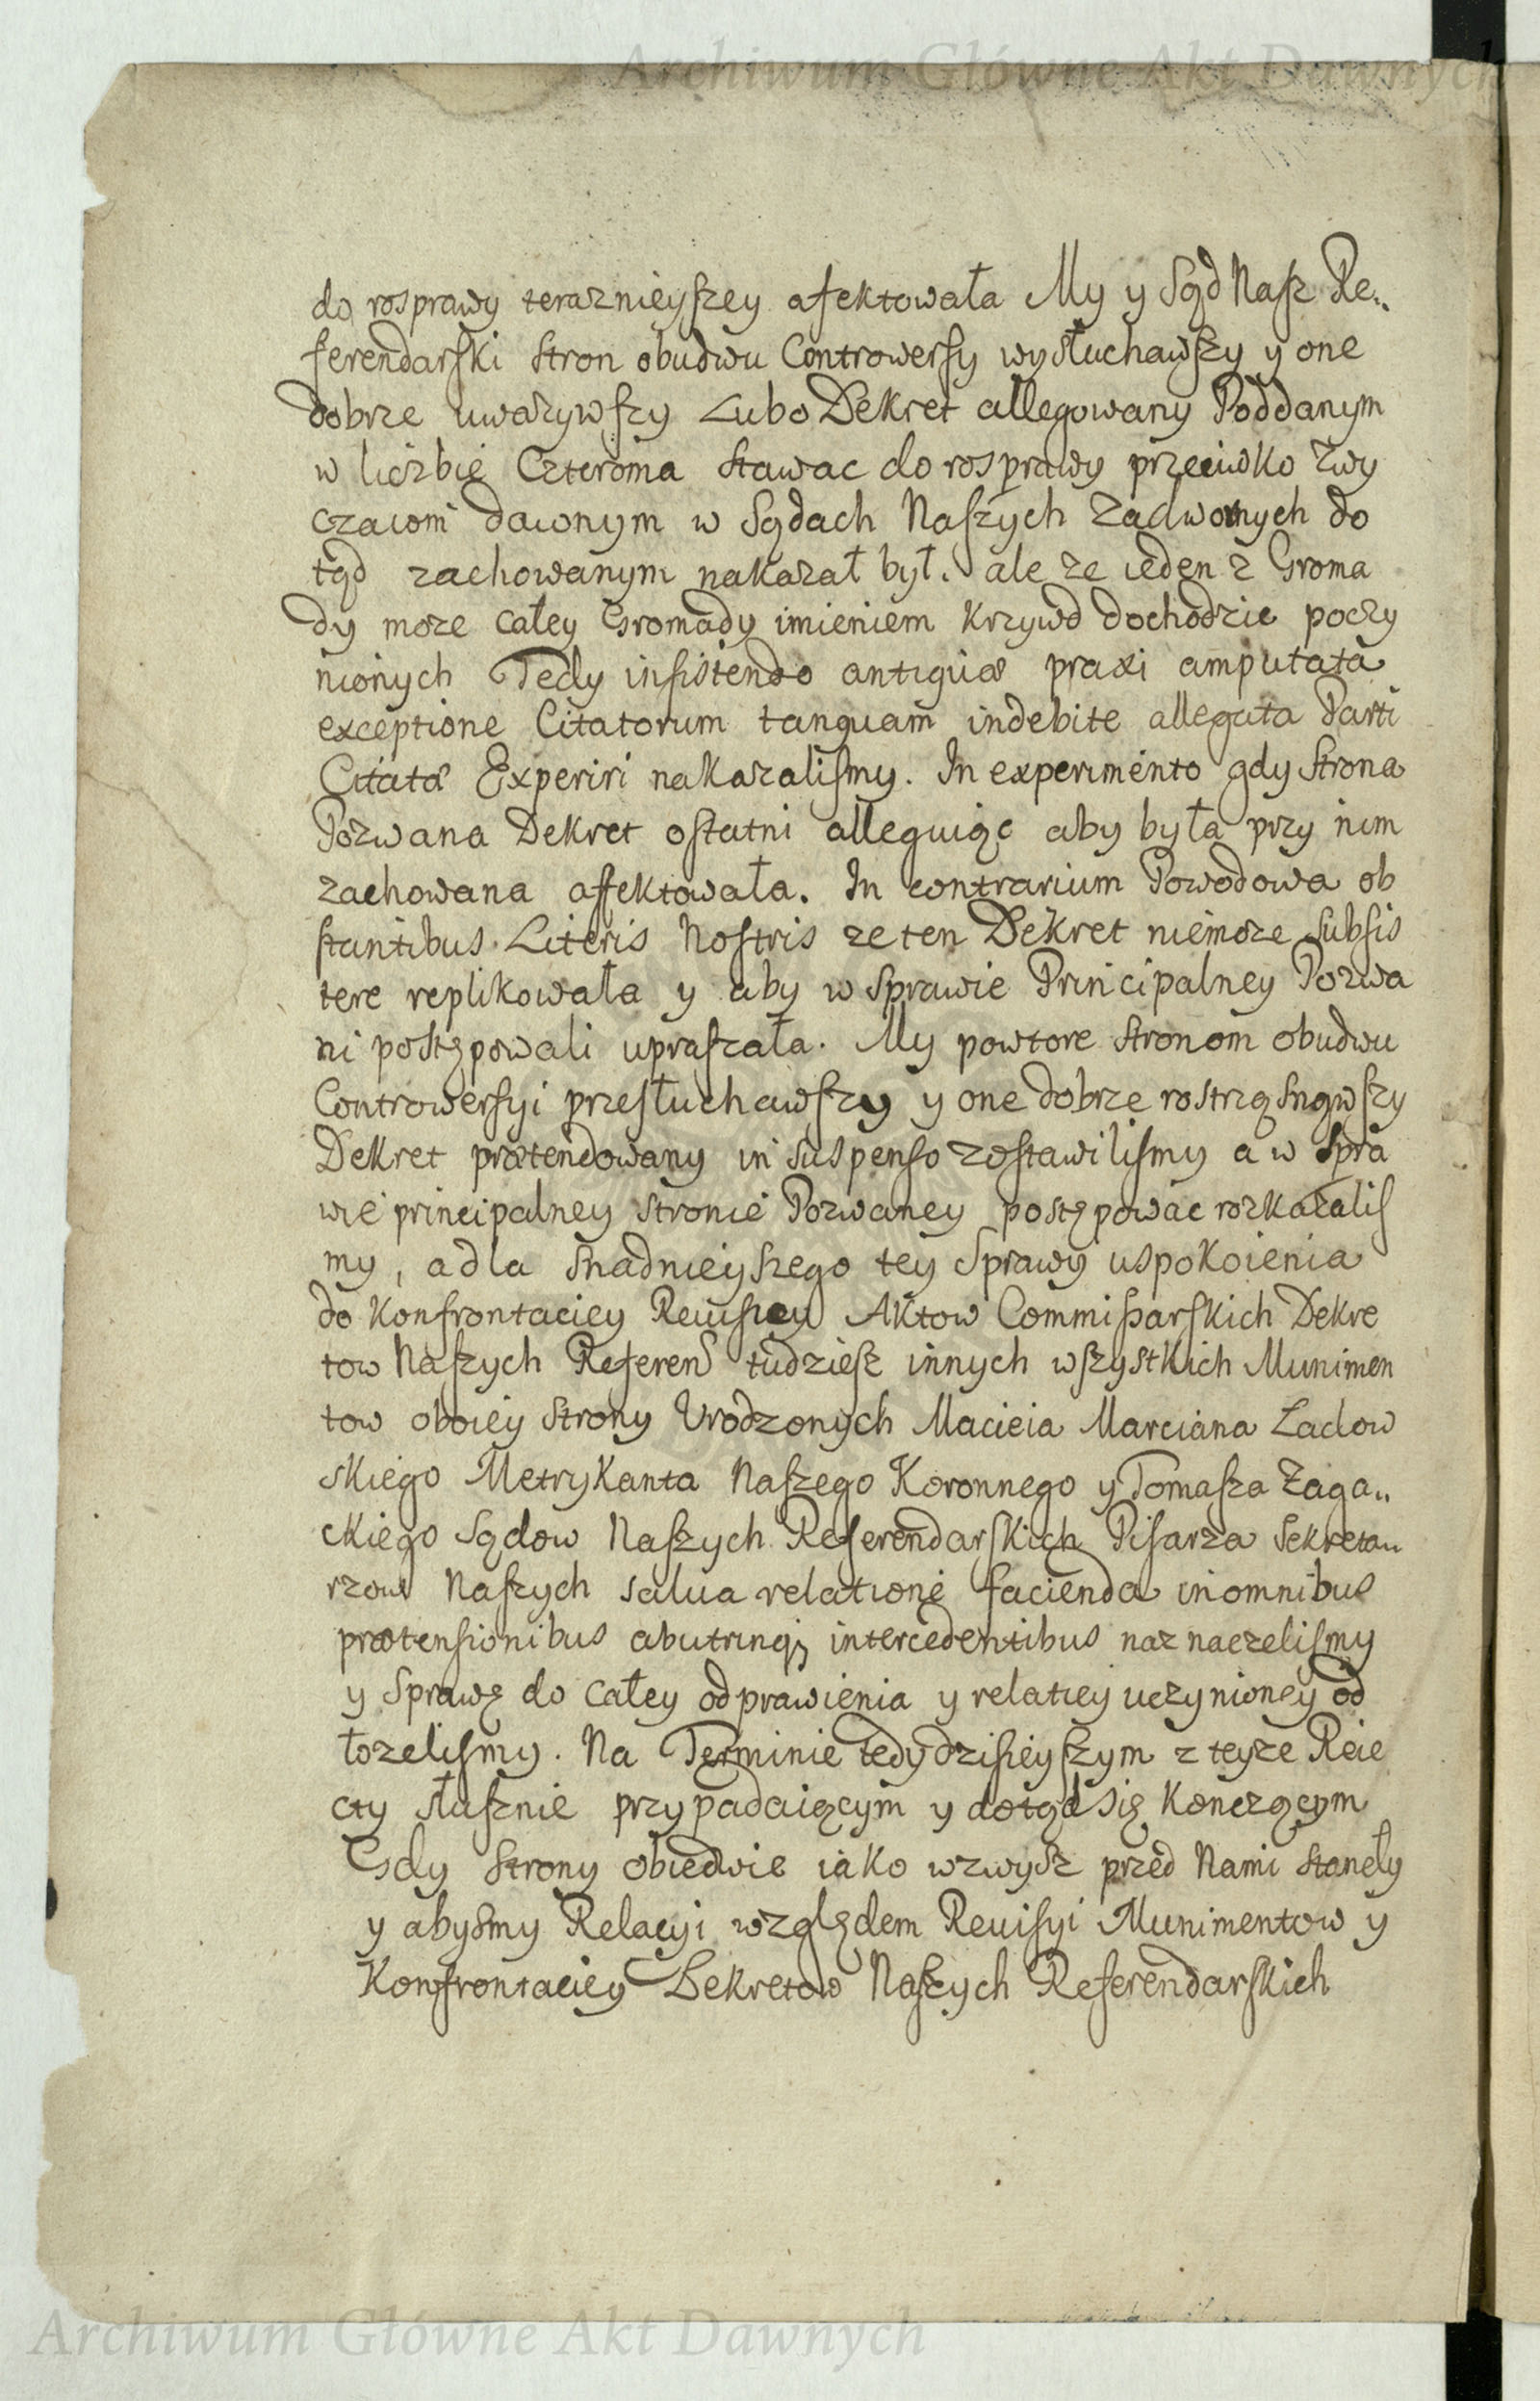 Archiwum Główne Akt Dawnych
do rosprawy teraznieyszey afektowała My y Sąd Nasz Re„
ferendarski Stron obudwu Controwersy wysłuchawszy y one
dobrze uwazywszy Lubo Dekret allegowany Poddanym
w liczbie Czteroma stawac do rosprawy przeciwko zwy
czaiom dawnym w Sądach Naszych Zadwornych do
tąd zachowanym nakazał był. ale ze ieden z Groma
dy moze całey Gromady imieniem krzywd dochodzic poczy
nionych Tedy insistendo antiquæ praxi amputata
exceptione Citatorum tanquam indebite allegata Parti
Citatæ Experiri nakazalismy. In experimento gdy Strona
Pozwana Dekret ostatni alleguiąc aby była przy nim
zachowana affektowała. In contrarium Powodowa ob
stantibus Literis Nostris ze ten Dekret niemoze subsis
tere replikowała y aby w Sprawie Principalney Pozwa
ni postępowali upraszała. My powtore stronom obudwu
Controwersyi przesłuchawszy y one dobrze rostrząsnąwszy
Dekret prætendowany in suspenso zostawilismy a w Spra
wie principalney stronie Pozwaney postępowac rozkazalis
my, a dla snadnieyszego tey Sprawy uspokoienia
do konfrontaciey Reuisiey Aktow Commissarskich Dekre
tow Naszych Referend tudziesz innych wszystkich Munimen
tow oboiey Strony Urodzonych Macieia Marciana Ladow
skiego Metrykanta Naszego Koronnego y Tomasza Zaga„
ckiego Sądow Naszych Referendarskich Pisarza Sekretau
rzow Naszych salua relatione facienda in omnibus
prætensionibus abutrinqȝ intercedentibus naznaczelismy
y Sprawę do całey odprawienia y relatiey uczynioney od
łozelismy. Na Terminie tedy dzisieyszym z teyze Reie
cty słusznie przypadaiącym y dotąd się konczącym
Gdy Strony obiedwie iako wzwysz przed Nami staneły
y abysmy Relacyi względem Reuisyi Munimentow y
Konfrontaciey Dekretow Naszych Referendarskich
Archiwum Główne Akt Dawnych